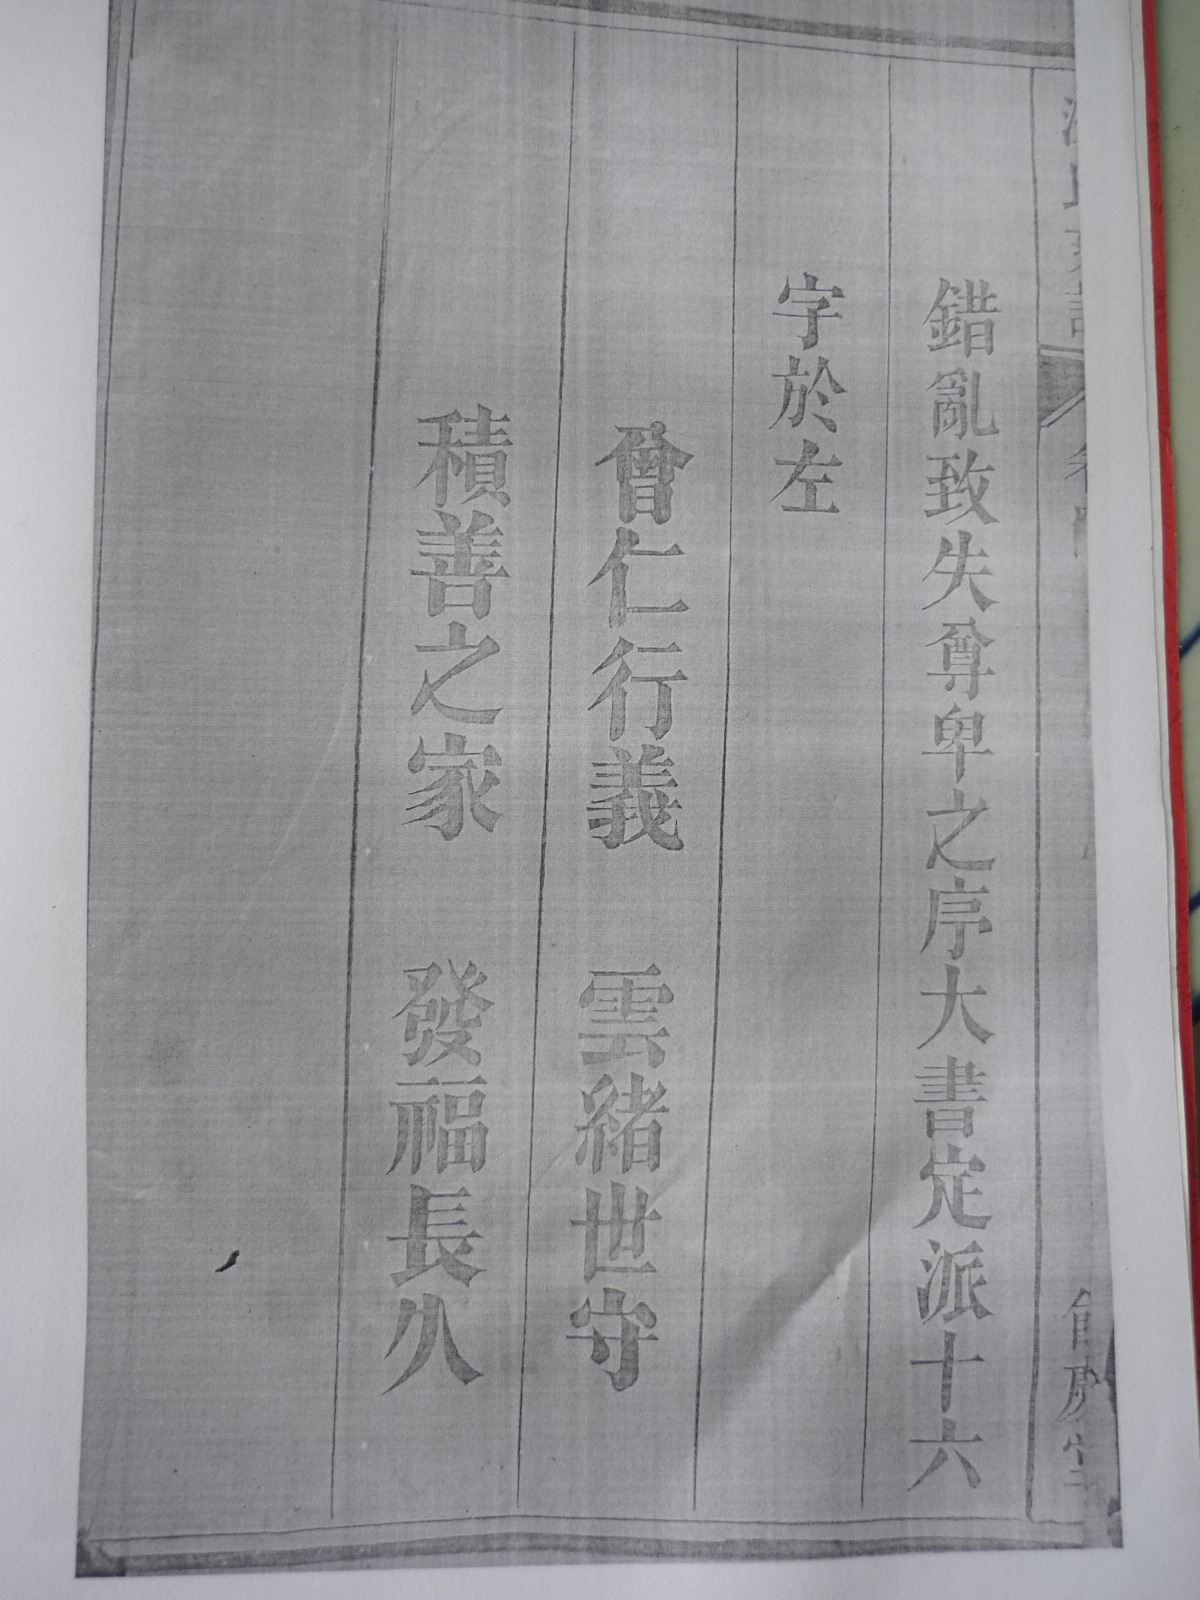 錯亂致失尊卑之序大書定派十六
字於左
會仁行義　雲緒世守
積善之家　發福長久